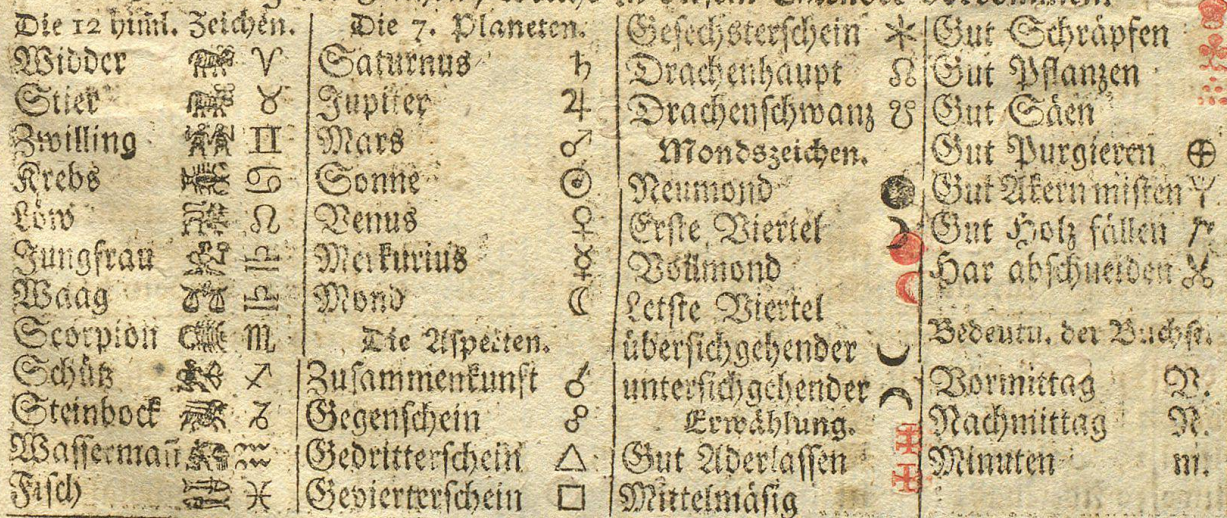 Die 12 himl. Zeichen.
Widder ♈
Stier ♉
Zwilling ♊
Krebs ♋
Löw ♌
Jungfrau ♎
Waag ♎
Scorpion ♏
Schütz ♐
Steinbock ♑
Wassermañ ♒
Fisch ♓
Die 7. Planeten.
Saturnus ♄
Jupiter ♃
Mars ♂
Sonne ☉
Venus ♀
Merkurius ☿
Mond ☾
Die Aspecten.
Zusammenkunft ☌
Gegenschein ☍
Gedritterschein △
Gevierterschein □
Gesechsterschein ⚹
Drachenhaupt ☊
Drachenschwanz ☋
Mondszeichen.
Neumond
Erste Viertel
Vollmond
Letste Viertel
übersichgehender
untersichgehender
Erwählung.
Gut Aderlassen
Mittelmäsig
Gut Schräpfen
Gut Pflanzen
Gut Säen
Gut Purgieren ⊕
Gut Akern misten
Gut Holz fällen
Har abschneiden
Bedeutu. der Buchst.
Vormittag V.
Nachmittag N.
Minuten m.